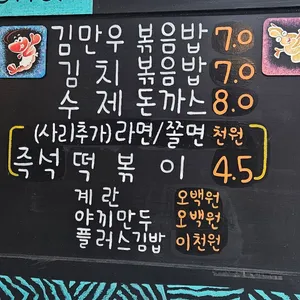 김만우 볶음밥 7.0
김치 볶음밥 7.0
수제돈까스 8.0
(사리추가)라면/쫄면 천원
즉석떡볶이 4.5
계란 오백원
야끼만두 오백원
플러스김밥 이천원